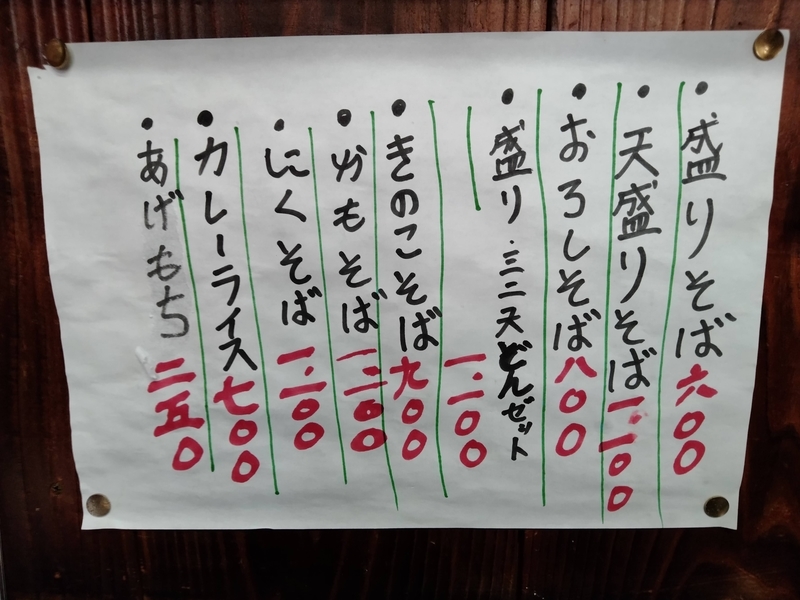 ・盛りそば 六〇〇
・天盛りそば 一、一〇〇
・おろしそば 八〇〇
・盛り・ミニ天どんゼット
一、一〇〇
・きのこそば 九〇〇
・かもそば 一、二〇〇
・にくそば 一、一〇〇
・カレーライス 七〇〇
・あげもち 二五〇